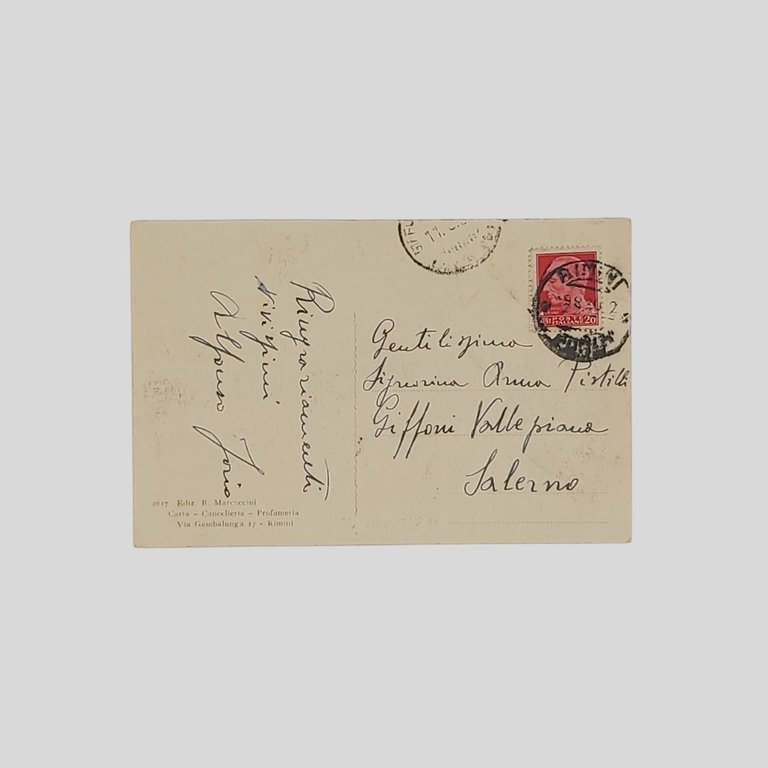 Ringraziamenti
vivissimi
Alfonso Iorio
2617 Ediz. R. Marcaccini
Carta - Cancelleria - Profumeria
Via Gambalunga 17 - Rimini
POSTE
ITALIANE 20
RIMINI
Gentilissima
Signorina Anna Pistilli
Giffoni Vallepiana
Salerno